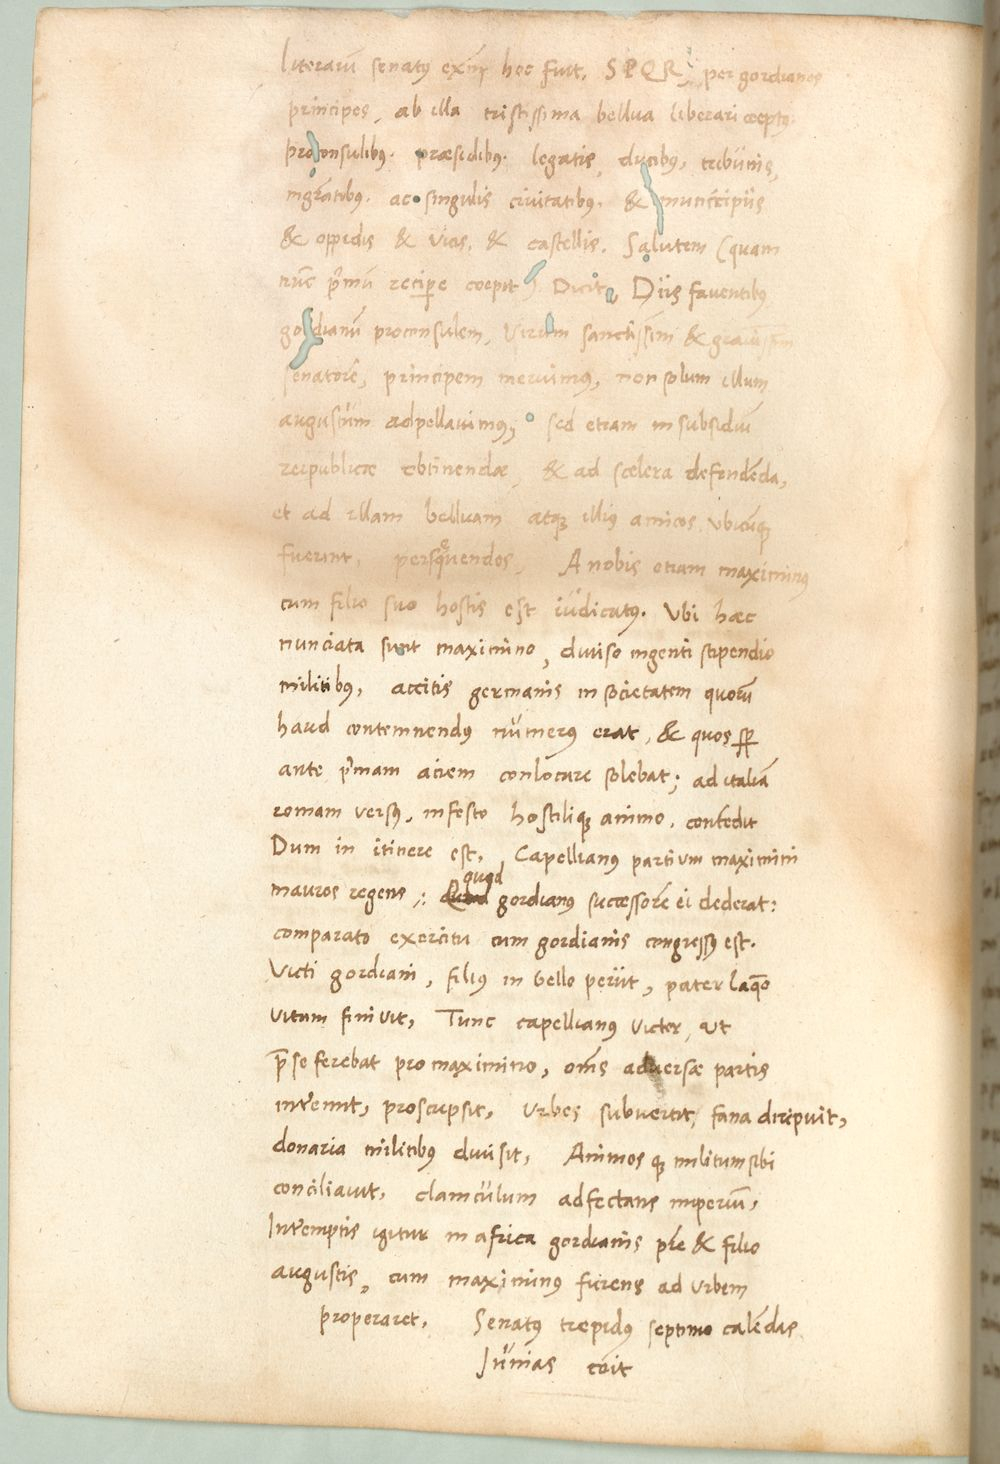 literarū senatꝰ exm̄ hoc fuit. SPQR, per gordianos
principes, ab illa tristissima bellua liberari cœptꝰ.
proconsulibꝰ. præsidibꝰ. legatis, ducibꝰ, tribunis,
mgr̄atibꝰ. ac singulis civitatibꝰ. & municipiis
& oppidis & vicis, & castellis. Salutem (quam
nūc p̄mū recipere coepit) Dicit, Diis faventibꝰ
gordianū proconsulem, Virum sanctissim & gravissim
senatorē, principem meruimꝰ, non solum illum
augustum adpellavimꝰ, sed etiam in subsidiū
reipublicæ obtinendæ, & ad scelera defendēda,
et ad illam belluam atqꝫ illiꝰ amicos vbicūqꝫ
fuerint, persequendos, A nobis etiam maximinꝰ
cum filio suo hostis est iudicatꝰ. Vbi hæc
nunciata sunt maximino, diviso ingenti stipendio
militibꝰ, accitis germanis in societatem quorū
haud contemnendꝰ numerꝰ erat, & quos sꝑ
ante p̄mam aciem conlocare solebat; ad italiā
romam versꝰ, infesto hostiliqꝫ animo, contēdit
Dum in itinere est, Capellianꝰ partium maximini
mauros regens; quod gordianꝰ successorē ei dederat:
comparato exercitu cum gordianis congressꝰ est.
Victi gordiani, filiꝰ in bello periit, pater laq̄o
vitam finivit, Tunc capellianꝰ victor, ut
p̄ se ferebat pro maximino, om̄s adversæ partis
int̄emit, proscripsit, Vrbes subvertit, fana diripuit,
donaria militibꝰ divisit, Animos qꝫ militum sibi
conciliavit, clamculum adfectans imperiū,
Int̄emptis igitur in africa gordianis pr̄e & filio
augustis, cum maximinꝰ furens ad urbem
properaret, Senatꝰ trepidꝰ septimo calēdas
Iunias coit